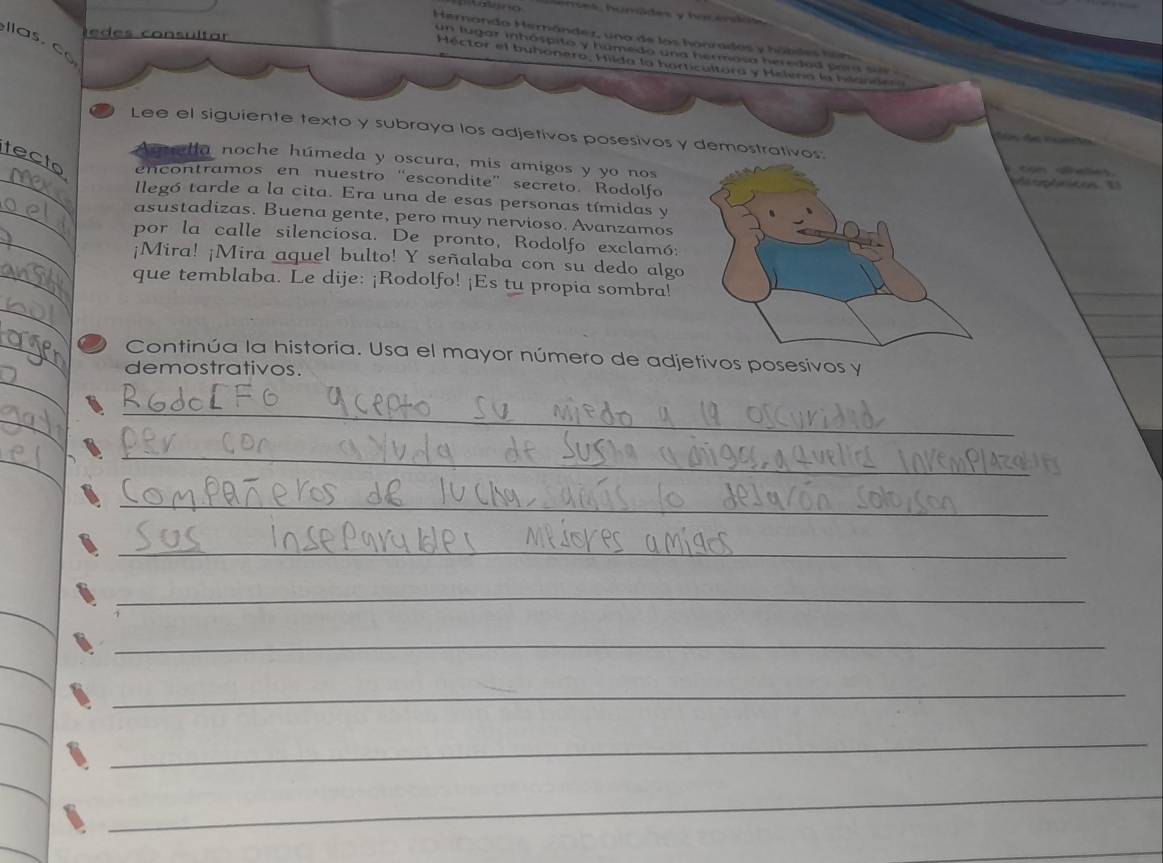 Hernando Hernández, uno de los honrados y hábiles
un lugar inhóspito y húmedo una hermosa heredad para sus
Héctor el buhonero, Hilda la horticultora y Helena la hilandera
ellas, co
ledes consultar
Lee el siguiente texto y subraya los adjetivos posesivos y demostrativos:
Aquella noche húmeda y oscura, mis amigos y yo nos
encontramos en nuestro "escondite" secreto. Rodolfo
llegó tarde a la cita. Era una de esas personas tímidas y
asustadizas. Buena gente, pero muy nervioso. Avanzamos
por la calle silenciosa. De pronto, Rodolfo exclamó:
¡Mira! ¡Mira aquel bulto! Y señalaba con su dedo algo
que temblaba. Le dije: ¡Rodolfo! ¡Es tu propia sombra!
itecto
Continúa la historia. Usa el mayor número de adjetivos posesivos y
demostrativos.
RodoLFo acepto su miedo a la oscuridad
per con ayuda de sus amigos, aquellos
compañeros de lucha, jamás lo dejaron solo, son
sus inseparables mejores amigos